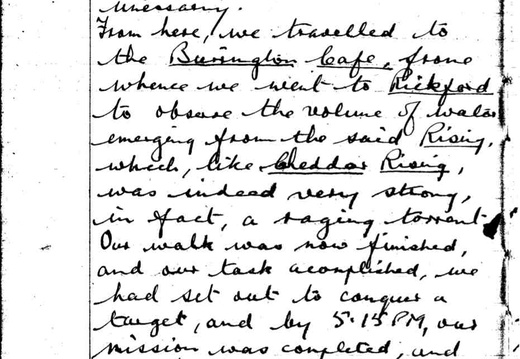 unecessary.
From here, we travelled to
the Burrington Cafe, from
whence we went to Rickford
to observe the volume of water
emerging from the said Rising,
which, like Cheddar Rising,
was indeed very strong,
in fact, a raging torrent.
Our walk was now finished,
and our task acomplished, we
had set out to conquer a
target, and by 5.15 PM, our
mission was completed, and